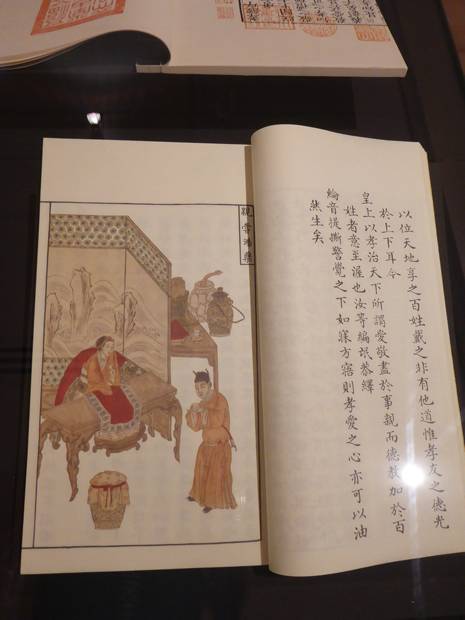 以位天地享之百姓戴之非有他道惟孝友之德光
於上下耳今
皇上以孝治天下所謂愛敬盡於事親而德教加於百
姓者意至渥也汝等編氓恭繹
綸音提撕警覺之下如寐方寤則孝愛之心亦可以油
然生矣
親嘗湯藥